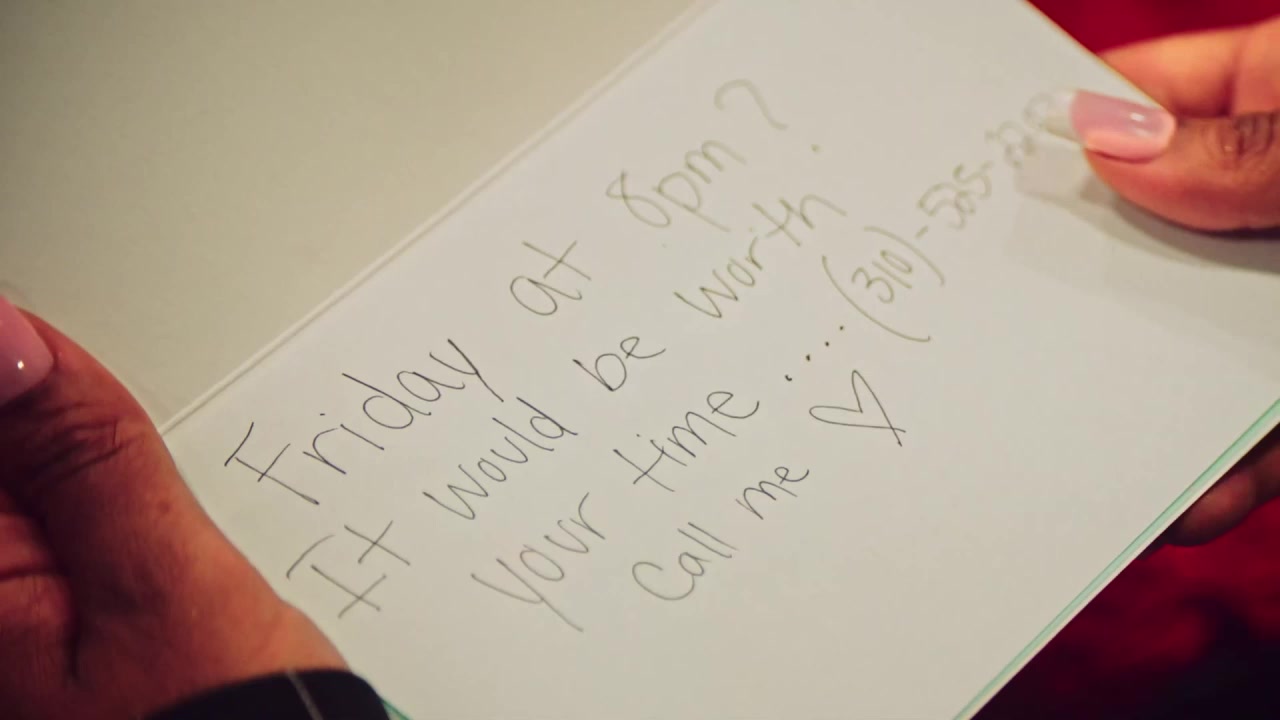 Friday at 8pm?
It would be worth
your time .... (310)-525-
Call me ♡